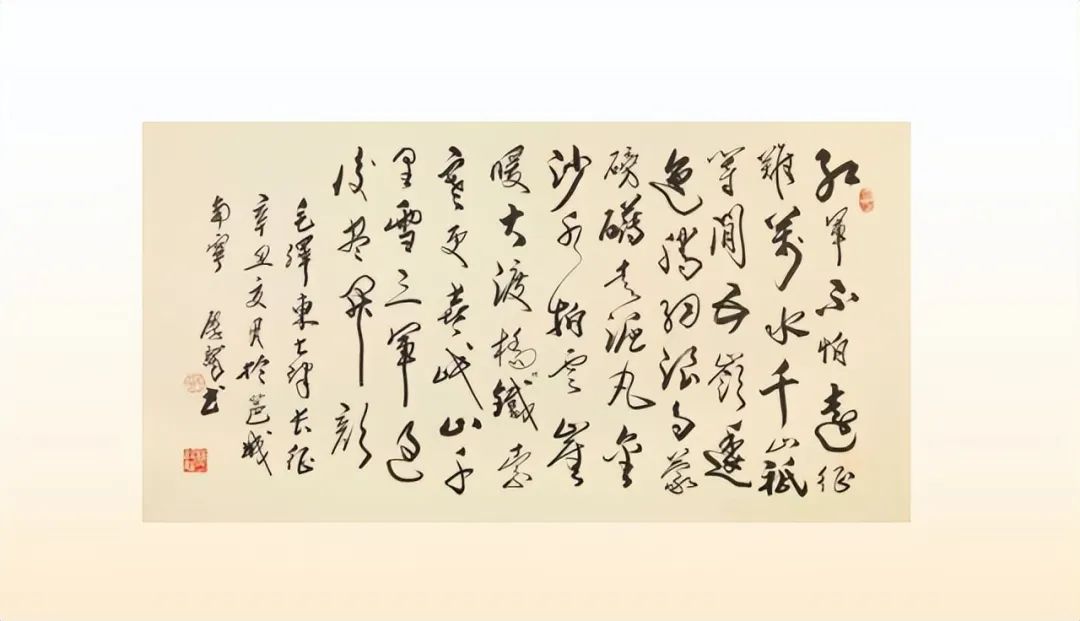 紅軍不怕遠征
難萬水千山祇
等閒五嶺逶
迤騰細浪烏蒙
磅礴走泥丸金
沙水拍雲崖
暖大渡橋鐵索
寒更喜岷山千
里雪三軍過
後盡開顏
毛澤東七律长征
辛丑亥月於邕城
南寧 书